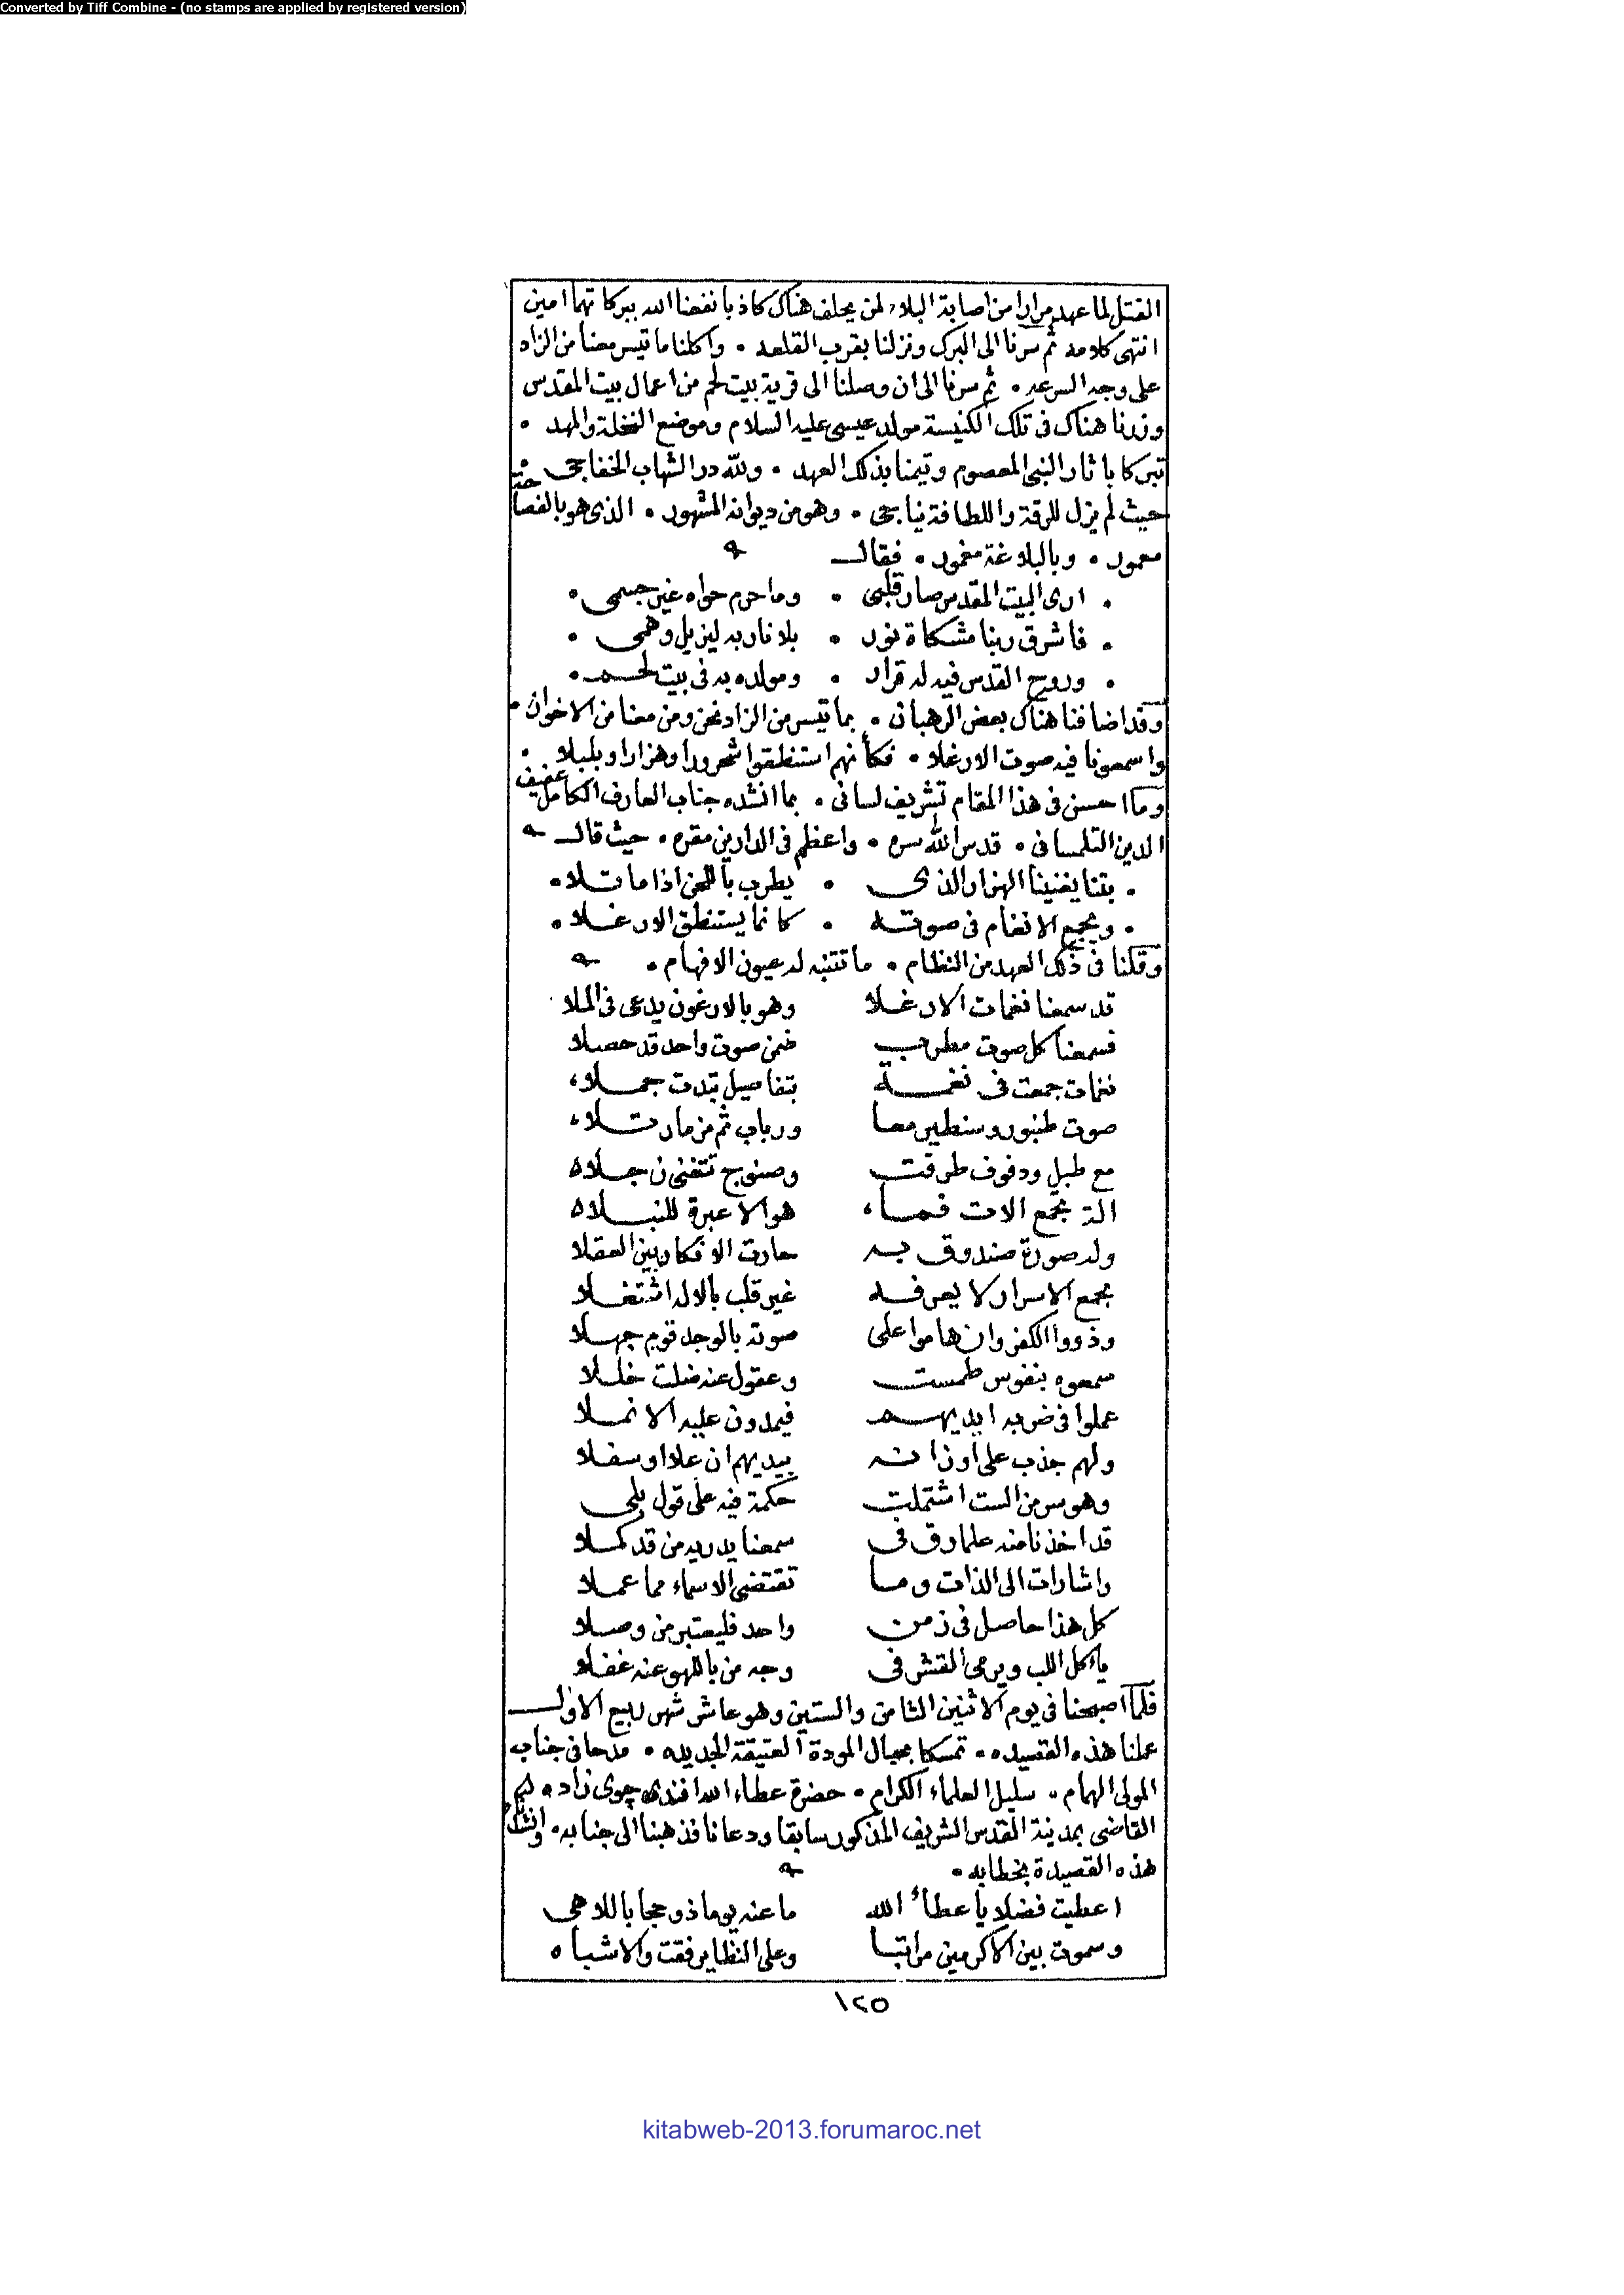 Converted by Tiff Combine - (no stamps are applied by registered version)
القتل لما عهد مرارا من اصابة البلاء لمن يحلف هناك كاذبا نفعنا الله ببركاتهما امين
انتهى كلامه ثم سرنا الى البرك ونزلنا بقرب القلعه • واكلنا ما تيسر معنا من الزاد
على وجه السرعه • ثم سرنا الى ان وصلنا الى قرية بيت لحم من اعمال بيت المقدس
وزرنا هناك فى تلك الكنيسة مولد عيسى عليه السلام وموضع النخلة والمهد •
تبركا باثار النبى المعصوم وتيمنا بذلك العهد • ولله در الشهاب الخفاجى
حيث لم يزل للرقة واللطافة يناجى • وهو من ديوانه المشهور • الذى هو بالفصاحة
معمور • وبالبلاغة مغمور • فقال
• ارى البيت المقدس صار قلبى • وما حرم حواه غير جسمى •
• فاشرق ربنا مشكاة نور • بلا نار به ليزيل وهمى •
• وروح القدس فيه له قرار • ومولده به فى بيت لحم •
وقد اضافنا هناك بعض الرهبان • بما تيسر من الزاد نحن ومن معنا من الاخوان •
واسمعونا فيه صوت الارغلا • فكأنهم استنطقوا شحرورا وهزارا وبلبلا •
وما احسن فى هذا المقام تشريف لسانى • بما انشده جناب العارف الكامل عفيف
الدين التلمسانى • قدس الله سره • واعظم فى الدارين مقره • حيث قال
• بتنا يغنينا الهزار الذى • يطرب باللحن اذا ما تلا •
• ويجمع الانغام فى صوته • كانما يستنطق الارغلا •
وقلنا فى ذلك العهد من النظام • ما تتنبه له عيون الافهام •
قد سمعنا نغمات الارغلا وهو بالارغون يدعى فى الملا
فسمعنا كل صوت مطرب ضمن صوت واحد قد حصلا
نغمات جمعت فى نغمة بتفاصيل تبدت جملا
صوت طنبور وسنطير معا ورباب ثم مزمار تلا
مع طبل ودفوف طرقت وصنوج تتغنى زجلا
الة تجمع الات فما هو الا عبرة للنبلا
وله صورة صندوق به حارت الافكار بين العقلا
مجمع الاسرار لا يعرفه غير قلب بالاله اشتغلا
وذووا الكفر وان هاموا على صوته بالوجد قوم جهلا
سمعوه بنفوس طمست وعقول عنه ضلت خللا
عملوا فى ضربه ايديهم فيمدون عليه الانملا
ولهم جذب على اوزانه بيديهم ان علا او سفلا
وهو سر من الست اشتملت حكمة فيه على قول بلى
قد اخذنا منه علما رق فى سمعنا يدريه من قد كملا
واشارات الى الذات وما تقتضى الاسماء مما عملا
كل هذا حاصل فى زمن واحد فليعتبر من وصلا
يأكل اللب ويرمى القشر فى وجه من باللهو عنه غفلا
فلما اصبحنا فى يوم الاثنين الثامن والستين وهو عاشر شهر ربيع الاول
عملنا هذه القصيده • تمسكا بحبال المودة العتيقة الجديده • مدحا فى جناب
المولى الهمام • سليل العلماء الكرام • حضرة عطاء الله افندى جوى زاده
القاضى بمدينة القدس الشريف المذكور سابقا ودعانا فذهبنا الى جنابه • وانشدناه
هذه القصيدة بخطابه •
اعطيت فضلا يا عطاء الله ما عنه يوما ذو حجا باللاهى
وسموت بين الاكرمين مراتبا وعلى النظاير فقت والاشباه
١٢٥
kitabweb-2013.forumaroc.net